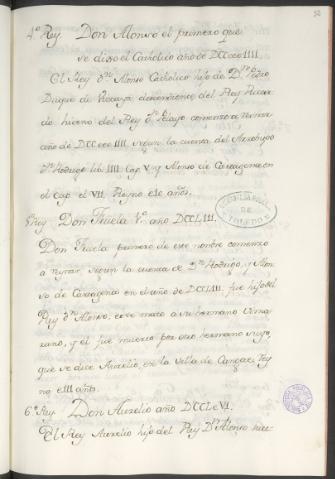 4.º Rey Don Alonso el primero que
se dixo el Catholico año de DCCxxxIIII
El Rey D.n Alonso Catholico hijo de D.n Pedro
Duque de Vizcaya descendiente del Rey Recare-
do hierno del Rey D.n Pelayo comenzo a reinar
año de DCCxxxIIII segun la cuenta del Arzobispo
D.n Rodrigo lib. IIII Cap. V y Alonso de Cartagena en
el cap. el VII. Reyno e 10 años.
5.º Rey Don Fruela 1.º año DCCLIII.
Don Fruela primero de este nombre comenzo
a reynar, segun la cuenta de D.n Rodrigo, y Alon-
so de Cartagena en el año de DCCLIII. fue hijo del
Rey D.n Alonso. este mato a su hermano Vima-
rano, y el fue muerto por otro hermano suyo,
que se dice Aurelio, en la Villa de Cangas; rey-
no e III años.
6.º Rey Don Aurelio año DCCLxVI.
El Rey Aurelio hijo del Rey D.n Alonso
TOLEDO
DE